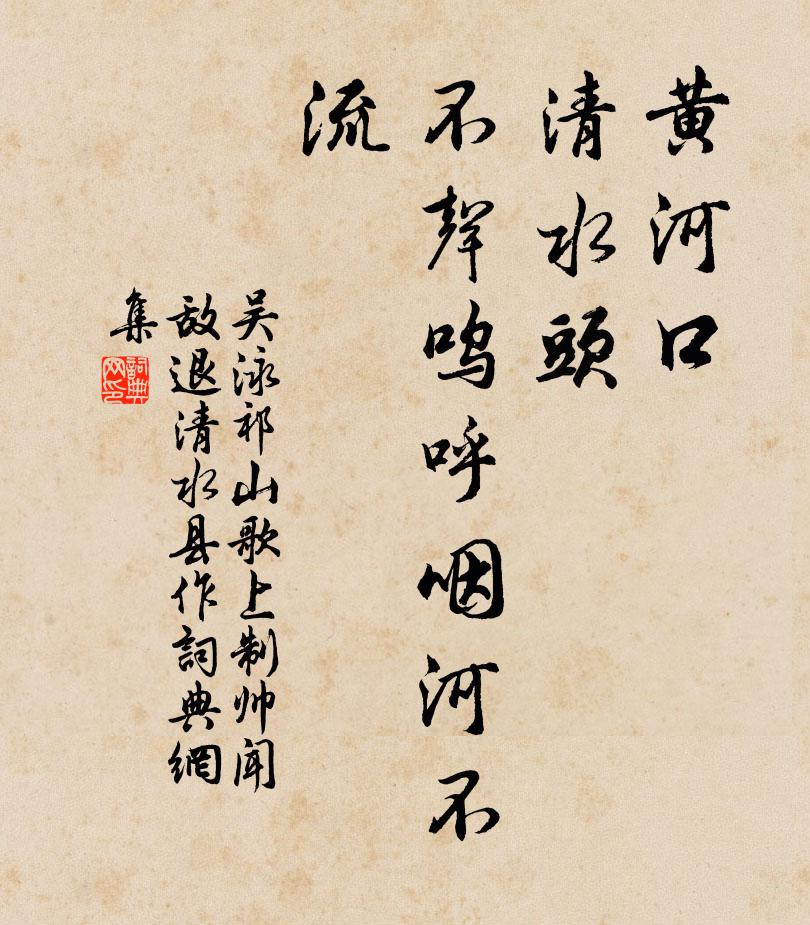 黄河口
清水頭
不聲嗚呼咽河不
流
吴泳祁山歌上制帅闻
敌退清水县作詞典網
集
詞典
网印